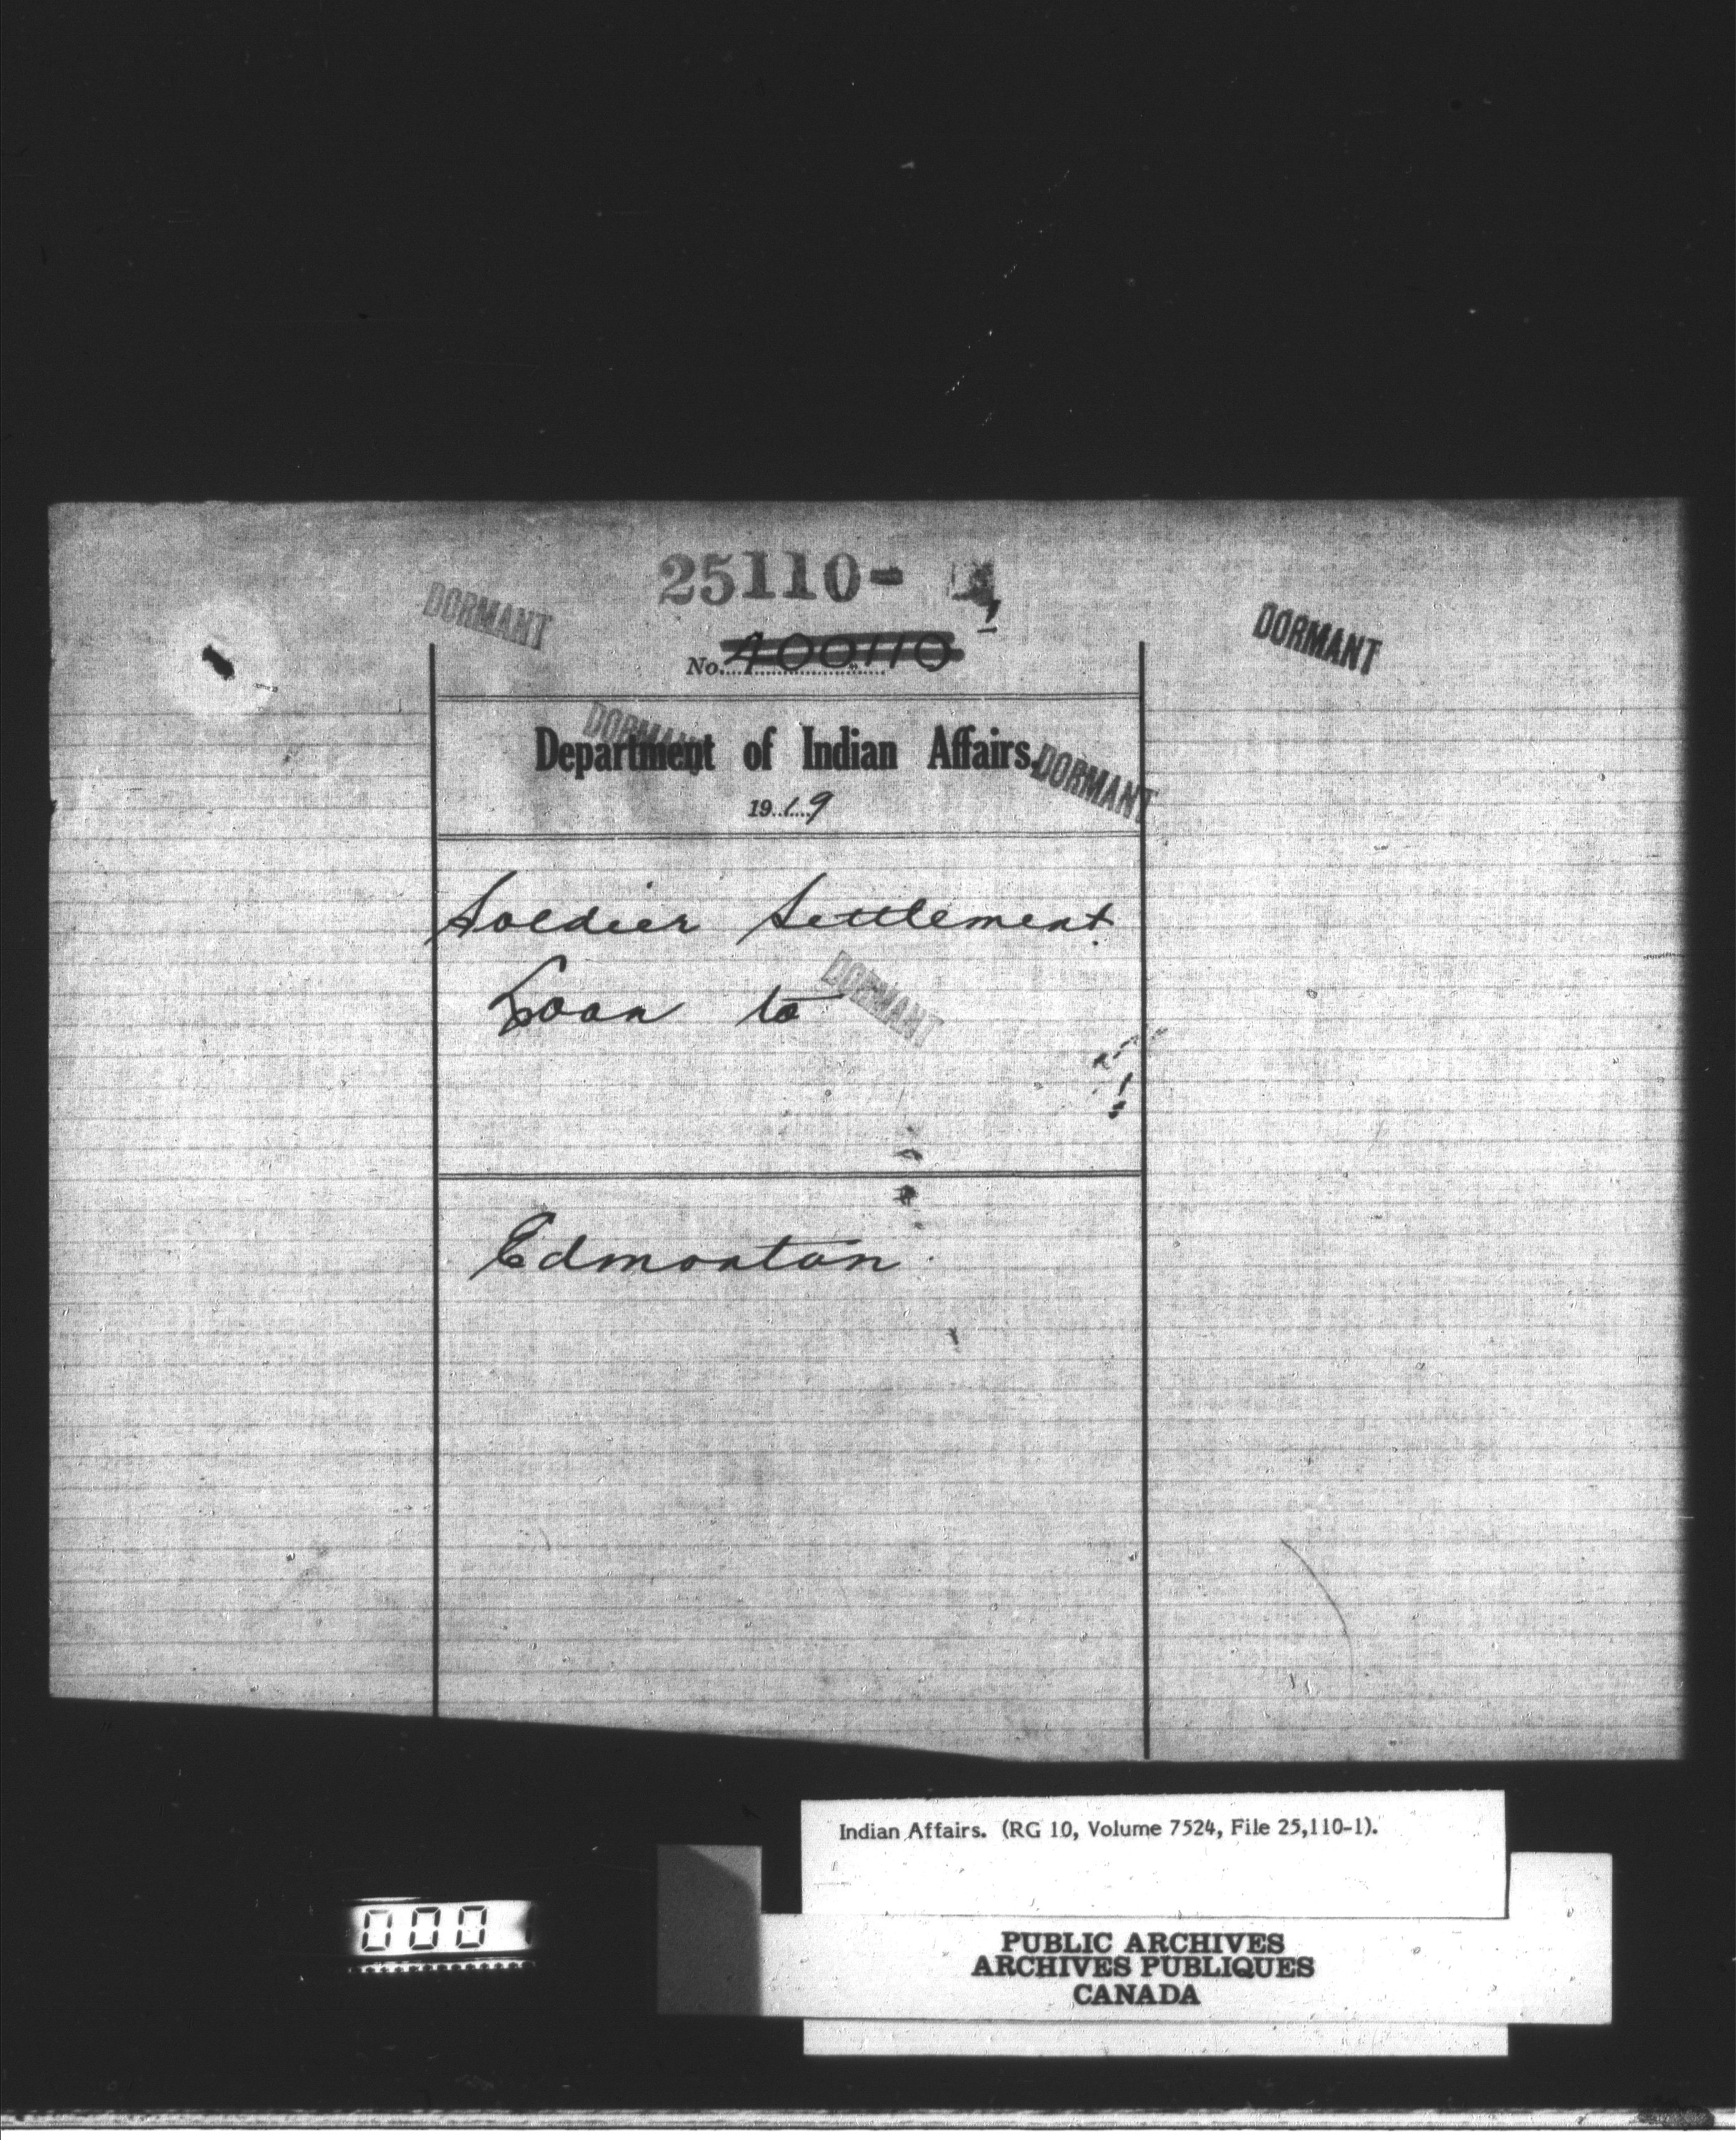 25110-
DORMANT
DORMANT
No. 400110
DORMANT
Department of Indian Affairs.
DORMANT
1919
Soldier Settlement
Loan to
DORMANT
Edmonton
Indian Affairs. (RG 10, Volume 7524, File 25,110-1).
000
PUBLIC ARCHIVES
ARCHIVES PUBLIQUES
CANADA